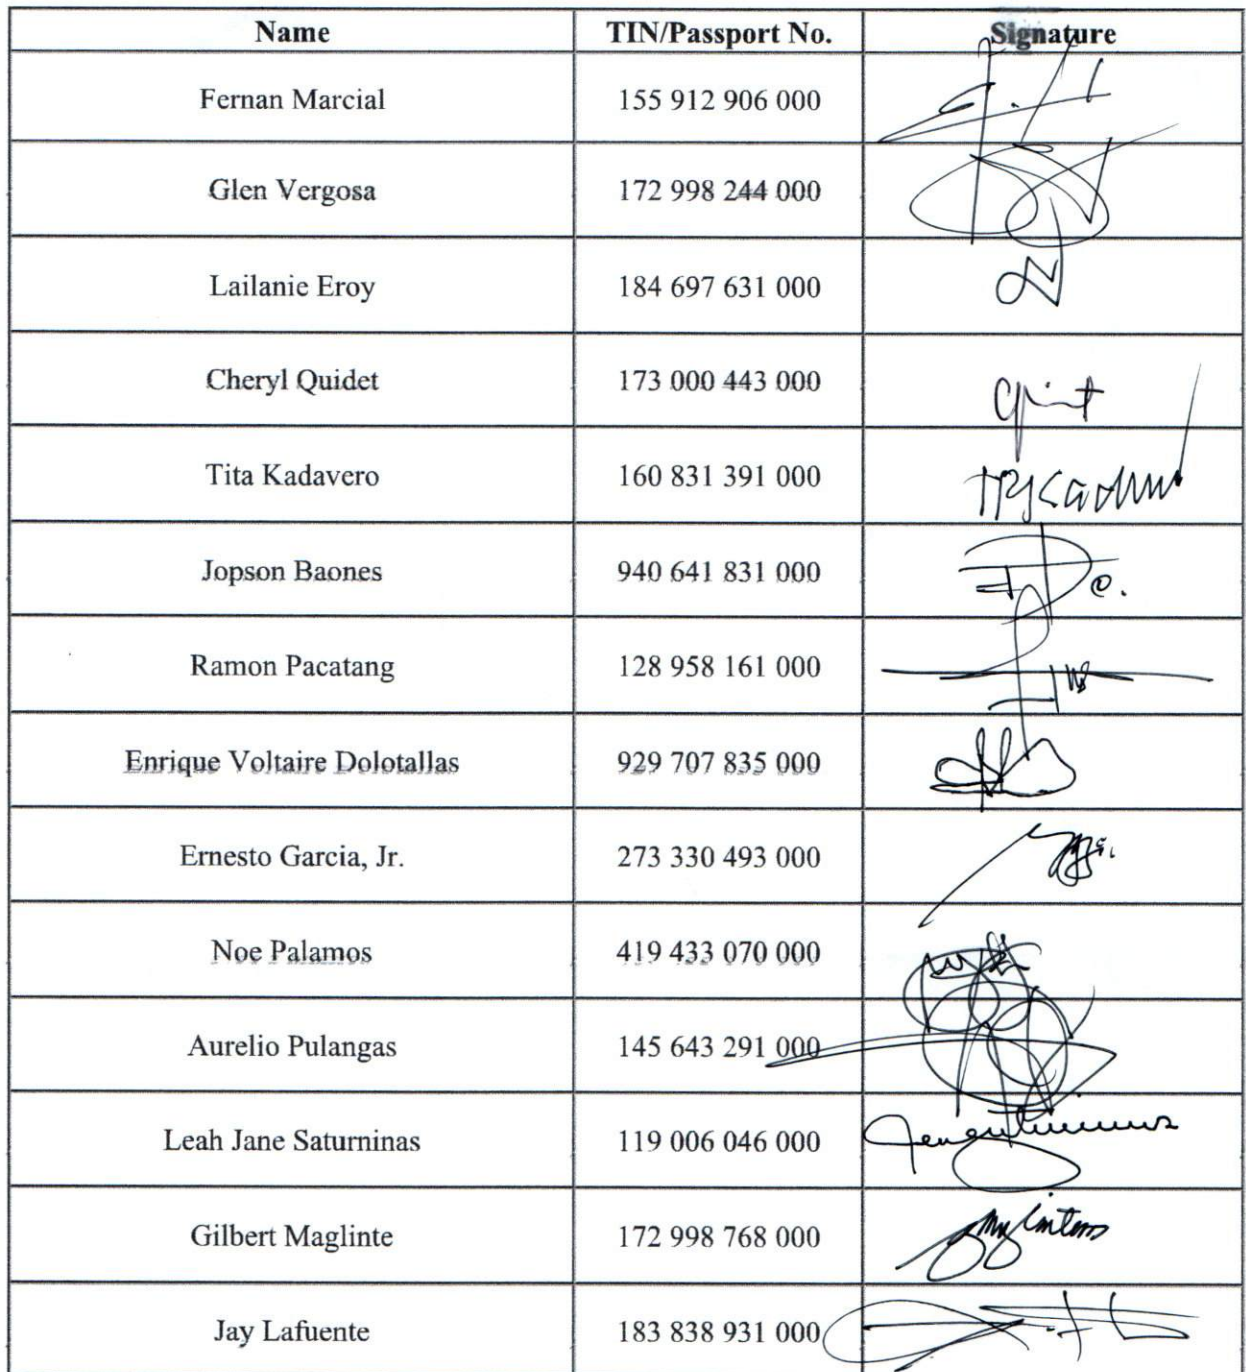 Name TIN/Passport No. Signature
Fernan Marcial 155 912 906 000
Glen Vergosa 172 998 244 000
Lailanie Eroy 184 697 631 000
Cheryl Quidet 173 000 443 000
Tita Kadavero 160 831 391 000
Jopson Baones 940 641 831 000
Ramon Pacatang 128 958 161 000
Enrique Voltaire Dolotallas 929 707 835 000
Ernesto Garcia, Jr. 273 330 493 000
Noe Palamos 419 433 070 000
Aurelio Pulangas 145 643 291 000
Leah Jane Saturninas 119 006 046 000
Gilbert Maglinte 172 998 768 000
Jay Lafuente 183 838 931 000